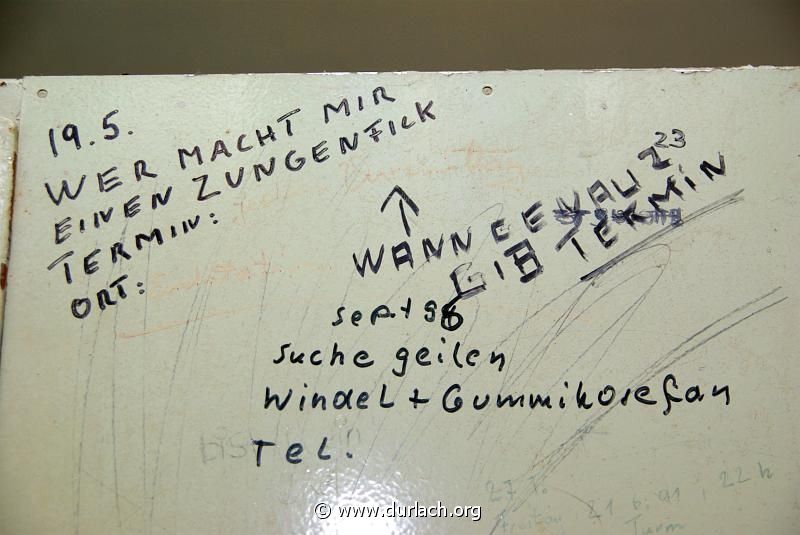 19.5.
WER MACHT MIR
EINEN ZUNGENFICK
TERMIN:
ORT: Endstation
WANN
23
GIB TERMIN
sept 96
suche geilen
Windel + Gummihosefan
Tel.
27
Freitag 21 6.91, 22 h
Turm
© www.durlach.org